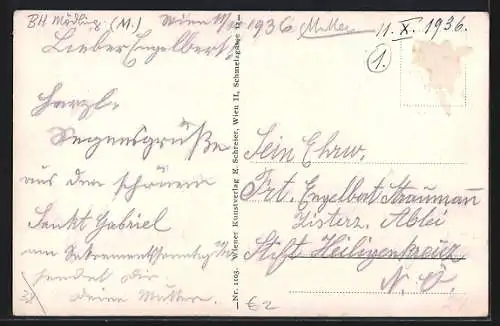 BH Mödling (M.) Wien 11/X 1936 Mutter 11. X. 1936.
1.
Lieber Engelbert
Herzl.
Segensgrüße
aus dem schönen
Sankt Gabriel
am Sakramentssonntag
sendet Dir
Deine Mutter.
—Nr. 1103. Wiener Kunstverlag K. Schreier, Wien II., Schmelzgasse
Sein Ehrw.
Frt. Engelbert Straumann
Zisterz. Abtei
Stift Heiligenkreuz
N. Ö.
€ 2